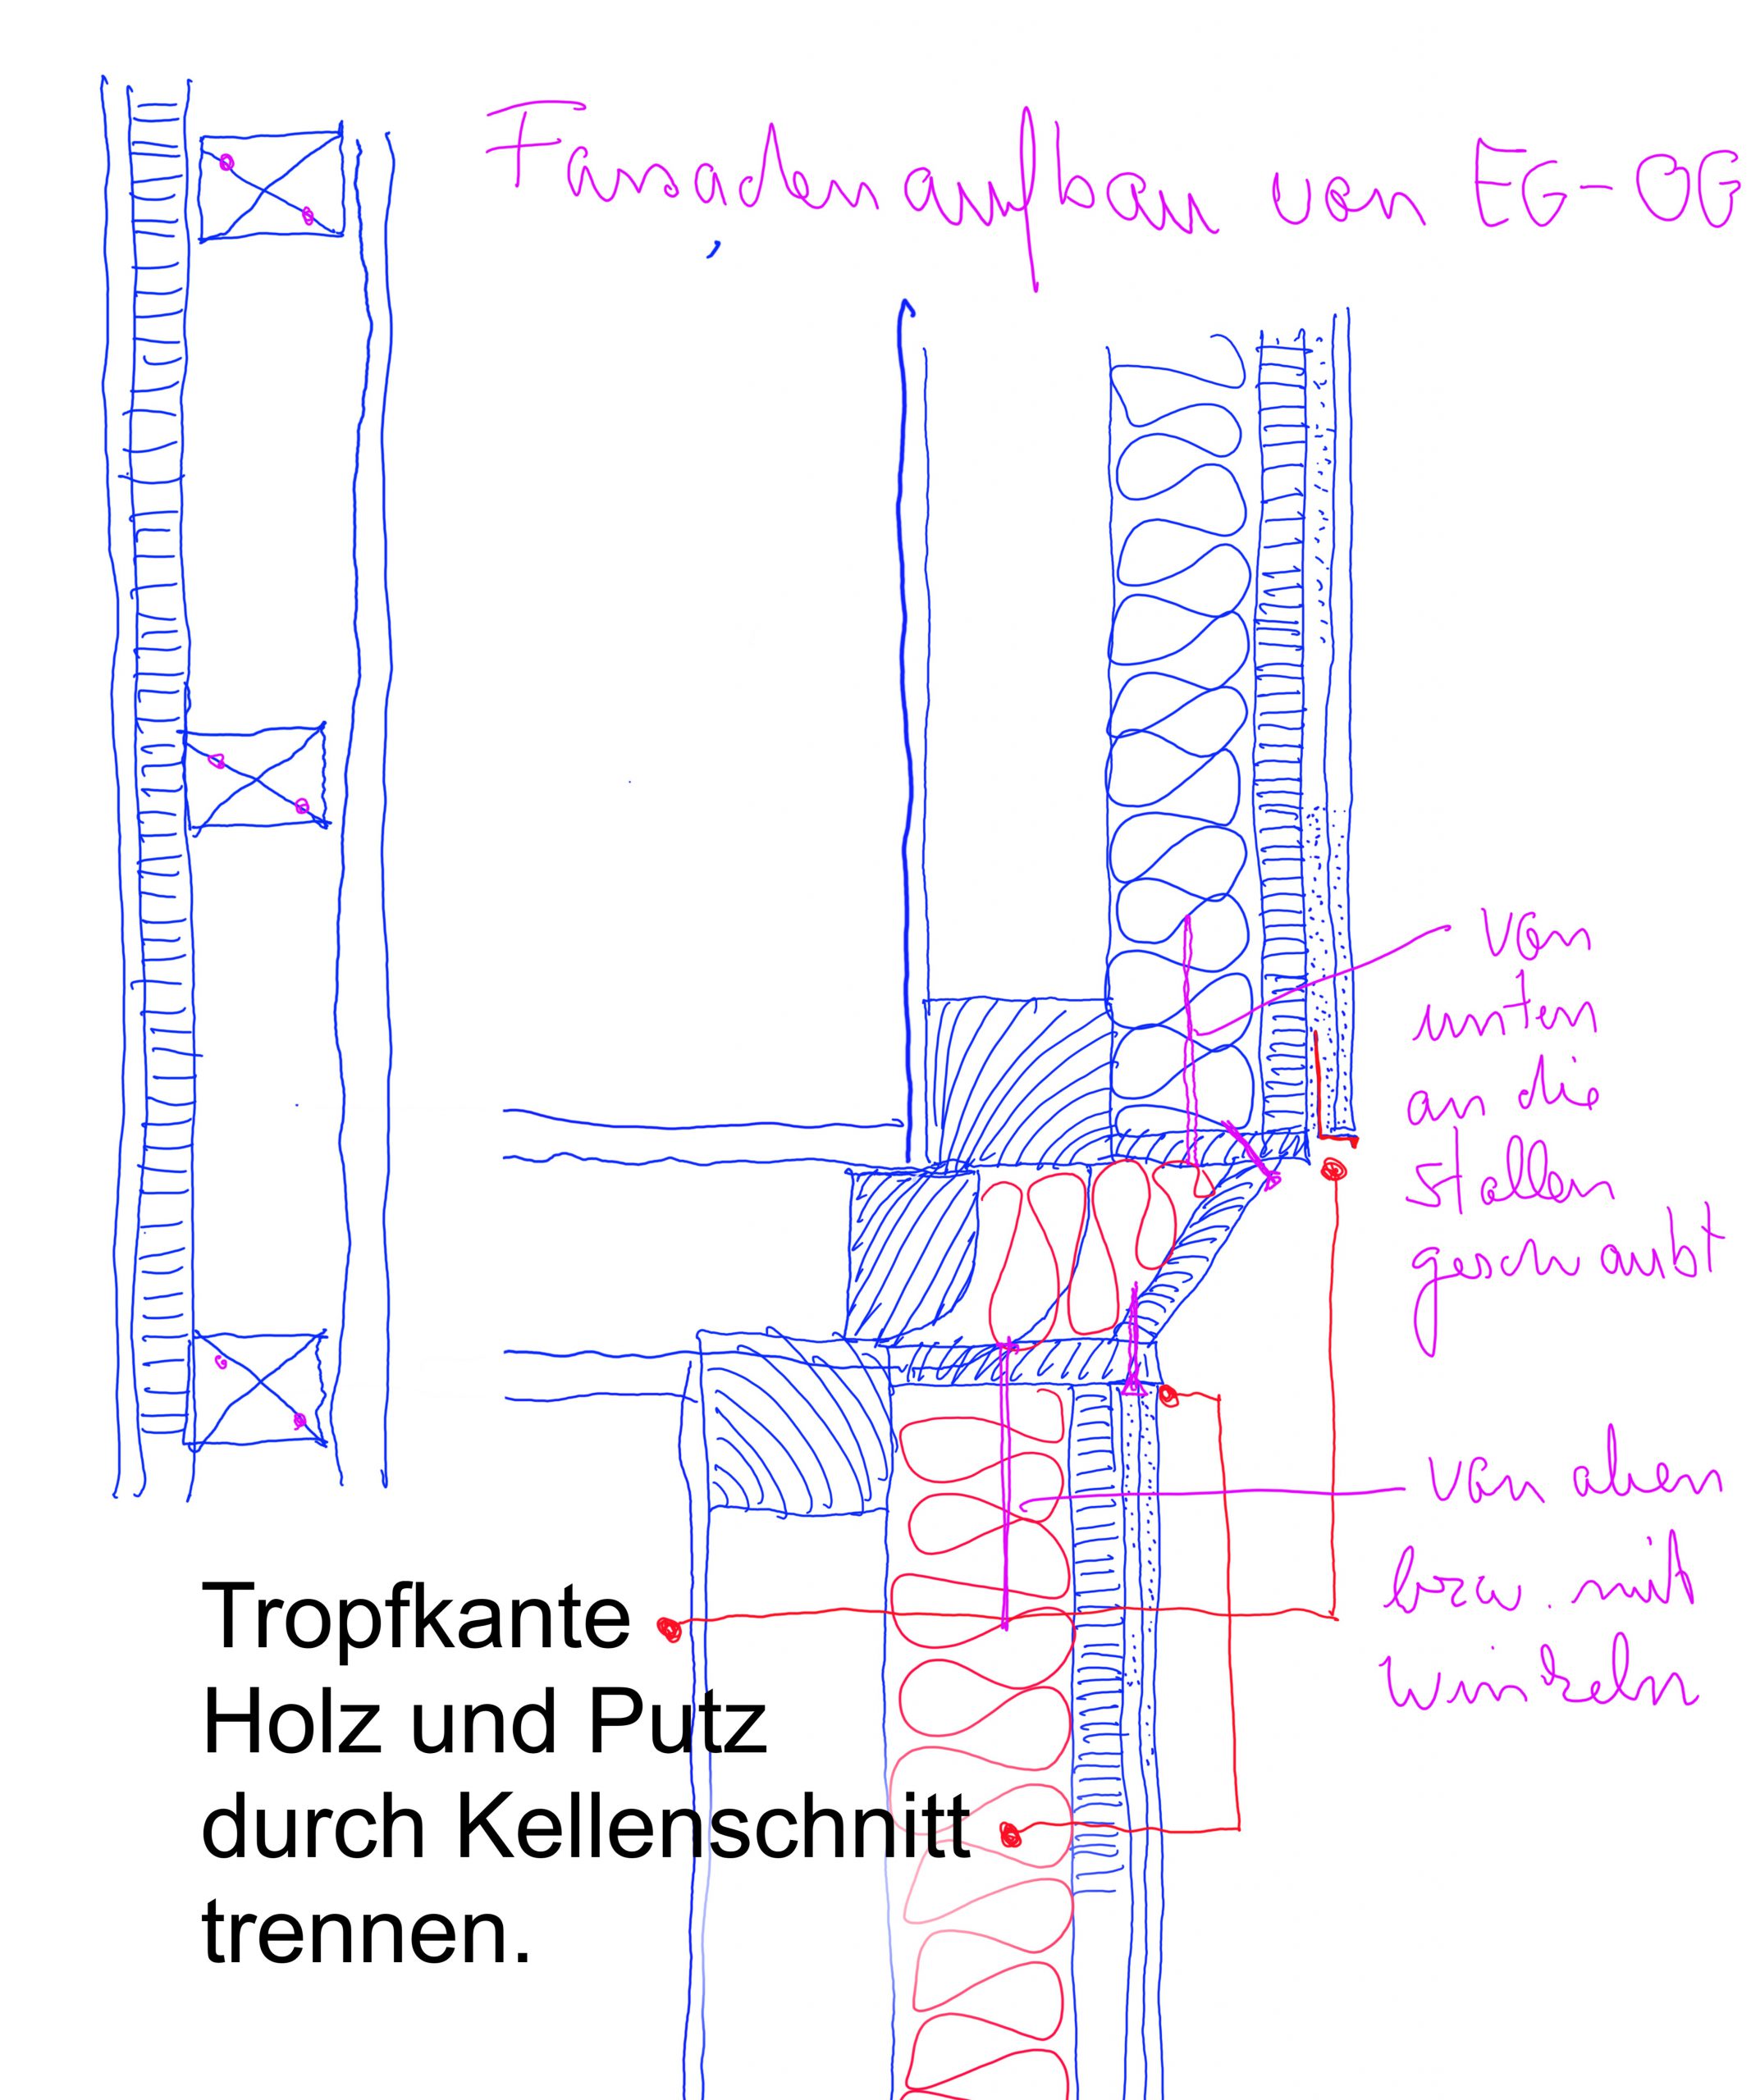 Fassadenaufbau von EG-OG
Von
unten
an die
stellen
geschraubt
von oben
bzw. mit
Winkeln
Tropfkante
Holz und Putz
durch Kellenschnitt
trennen.